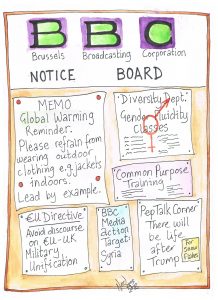 BBC
Brussels Broadcasting Corporation
NOTICE BOARD
MEMO
Global Warming
Reminder.
Please refrain from
wearing outdoor
clothing e.g jackets
indoors.
Lead by example.
Diversity Dept.
Gender Fluidity
Classes
Common Purpose
Training
€U Directive
Avoid discourse
on €U-UK
Military
Unification
BBC
Media
action
Target:
Syria
Pep Talk Corner
There will
be life
after
Trump
For
Snow
Flakes